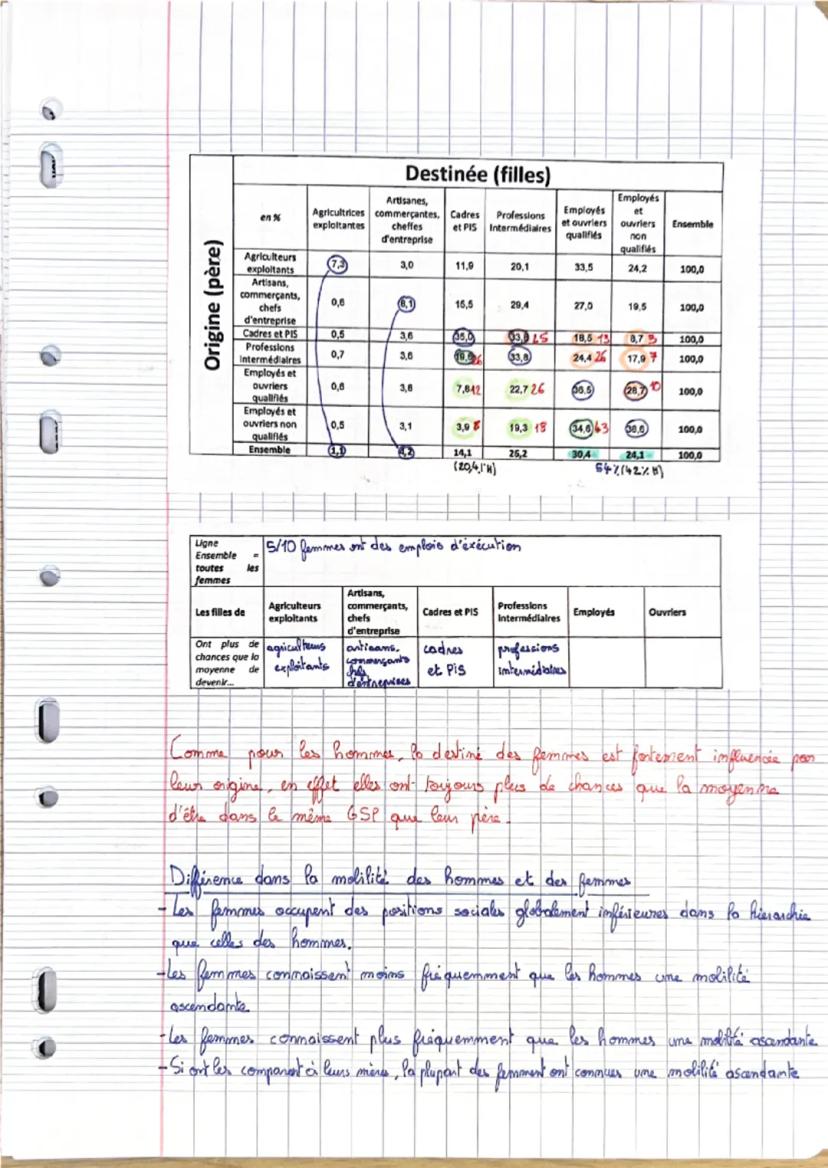 Destinée (filles)
Origine (père)
en % Agricultrices exploitantes Artisanes, commerçantes, cheffes d'entreprise Cadres et PIS Professions Intermédiaires Employés et ouvriers qualifiés Employés et ouvriers non qualifiés Ensemble
Agriculteurs exploitants 7,3 3,0 11,9 20,1 33,5 24,2 100,0
Artisans, commerçants, chefs d'entreprise 0,6 6,1 16,5 29,4 27,0 19,5 100,0
Cadres et PIS 0,5 3,6 35,0 25 18,5 13 8,7 100,0
Professions Intermédiaires 0,7 3,6 26 33,8 24,4 26 17,9 7 100,0
Employés et ouvriers qualifiés 0,6 3,8 7,8 12 22,7 26 36,5 28,7 10 100,0
Employés et ouvriers non qualifiés 0,5 3,1 3,9 8 19,3 18 34,6 38,6 100,0
Ensemble 1,1 4,2 14,1 26,2 30,4 24,1 100,0
(20,4% H) 54% (42% H)
Ligne Ensemble = toutes les femmes 5/10 femmes ont des emplois d'éxécution
Les filles de Agriculteurs exploitants Artisans, commerçants, chefs d'entreprise Cadres et PIS Professions Intermédiaires Employés Ouvriers
Ont plus de chances que la moyenne de devenir... agriculteurs exploitants artisans, commerçants d'entreprises cadres et PiS professions intermédiaires
Comme pour les hommes, la destiné des femmes est fortement influencée par
leur origine, en effet elles ont toujours plus de chances que la moyenne
d'être dans le même GSP que leur père.
Différence dans la mobilité des hommes et des femmes
- Les femmes occupent des positions sociales globalement inférieures dans la hiérarchie
que celles des hommes.
- Les femmes connaissent moins fréquemment que les hommes une mobilité
ascendante
- Les femmes connaissent plus fréquemment que les hommes une mobilité asandante
- Si ont les comparent à leurs mères, la plupart des femment ont connues une mobilité ascendante